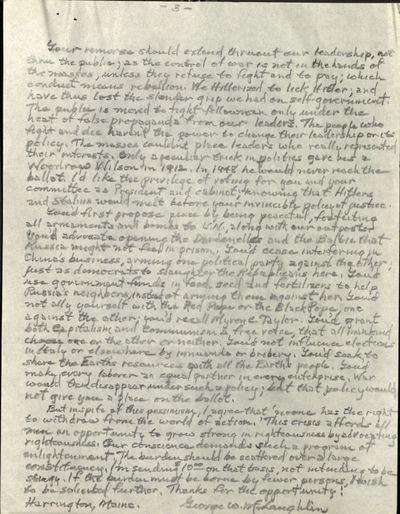 - 3 -
Your remorse should extend thruout our leadership, not
thru the public; as the control of war is not in the hands of
the masses, unless they refuse to fight and to pay; which
conduct means rebellion. We Hitlerized to lick Hitler; and
have thus lost the slender grip we had on self-government.
The public is moved to fight fellowmen only under the
heat of false propaganda from our leaders. The people who
fight and die haven't the power to change their leadership or its
policy. The masses couldn't place leaders who really represented
their interests. Only a peculiar trick in politics gave us a
Woodrow Wilson in 1912. In 1948 he would never reach the
ballot. I'd like the privilege of voting for you and your
committee as President and cabinet; knowing that Hitlers
and Stalins would melt before your invincible policy of justice.
You'd first propose peace by being peaceful, forfeiting
all armaments and bombs to U.N., along with our outposts
You'd advocate opening the Dardanelles and the Baltic that
Russia might not feel in prison. You'd cease interfering in
China's business, arming one political party against the other;
just as democrats to slaughter the Republicans here. You'd
use government funds in food, seed and fertilizers to help
Russia's neighbors, instead of arming those against her. You'd
not ally yourself with the Red Pope or the Black Pope, one
against the other; you'd recall Myron C. Taylor. You'd grant
both Capitalism and Communism a free voice, that all mankind
choose one or the other or neither. You'd not influence elections
in Italy or elsewhere by innuendo or bribery. You'd seek to
share the Earth's resources with all the Earth's people. You'd
make every laborer an equal partner in every enterprise. War
would thus disappear under such a policy; but that policy would
not give you a place on the ballot.
But in spite of this pessimism, I agree that no one has the right
to withdraw from the world of action. This crisis affords all
men an opportunity to grow strong in righteousness by advocating
righteousness. Our conscience demands such a program of
enlightenment. The burden should be scattered over a large
constituency. I'm sending $10.00 on that basis, not intending to be
stingy. If the burden must be borne by fewer persons, I wish
to be solicited further. Thanks for the opportunity!
Harrington, Maine. George W. McLaughlin